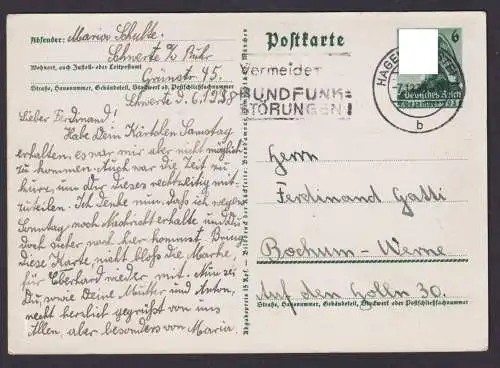 Absender: Maria Schulte.
Schwerte a/ Ruhr
Wohnort, auch Zustell- oder Leitpostamt
Grünstr. 45.
Straße, Hausnummer, Gebäudeteil, Stockwerk od. Postschließfachnummer
Schwerte d. 6.1938
Lieber Ferdinand!
Habe Dein Kärtchen Samstag
erhalten, es war mir aber nicht möglich
zu kommen. Auch war die Zeit zu
kurz, um Dir dieses rechtzeitig mit-
zuteilen. Ich denke nun, daß ich
Sonntag noch Nachricht erhalte und Du
doch sicher nach hier kommst. Bringe
diese Karte, nicht bloß die Marke,
für Eberhard wieder mit. Nun sei
Du, sowie Deine Mutter und Anton,
recht herzlich gegrüßt von uns
Allen, aber besonders von Maria.
Postkarte
6
Deutsches Reich
Vermeidet
RUNDFUNK-
STÖRUNGEN!
HAGEN
b
Herrn
Ferdinand Gatti
Bochum-Werne
Auf den Holln 30.
Straße, Hausnummer, Gebäudeteil, Stockwerk oder Postschließfachnummer